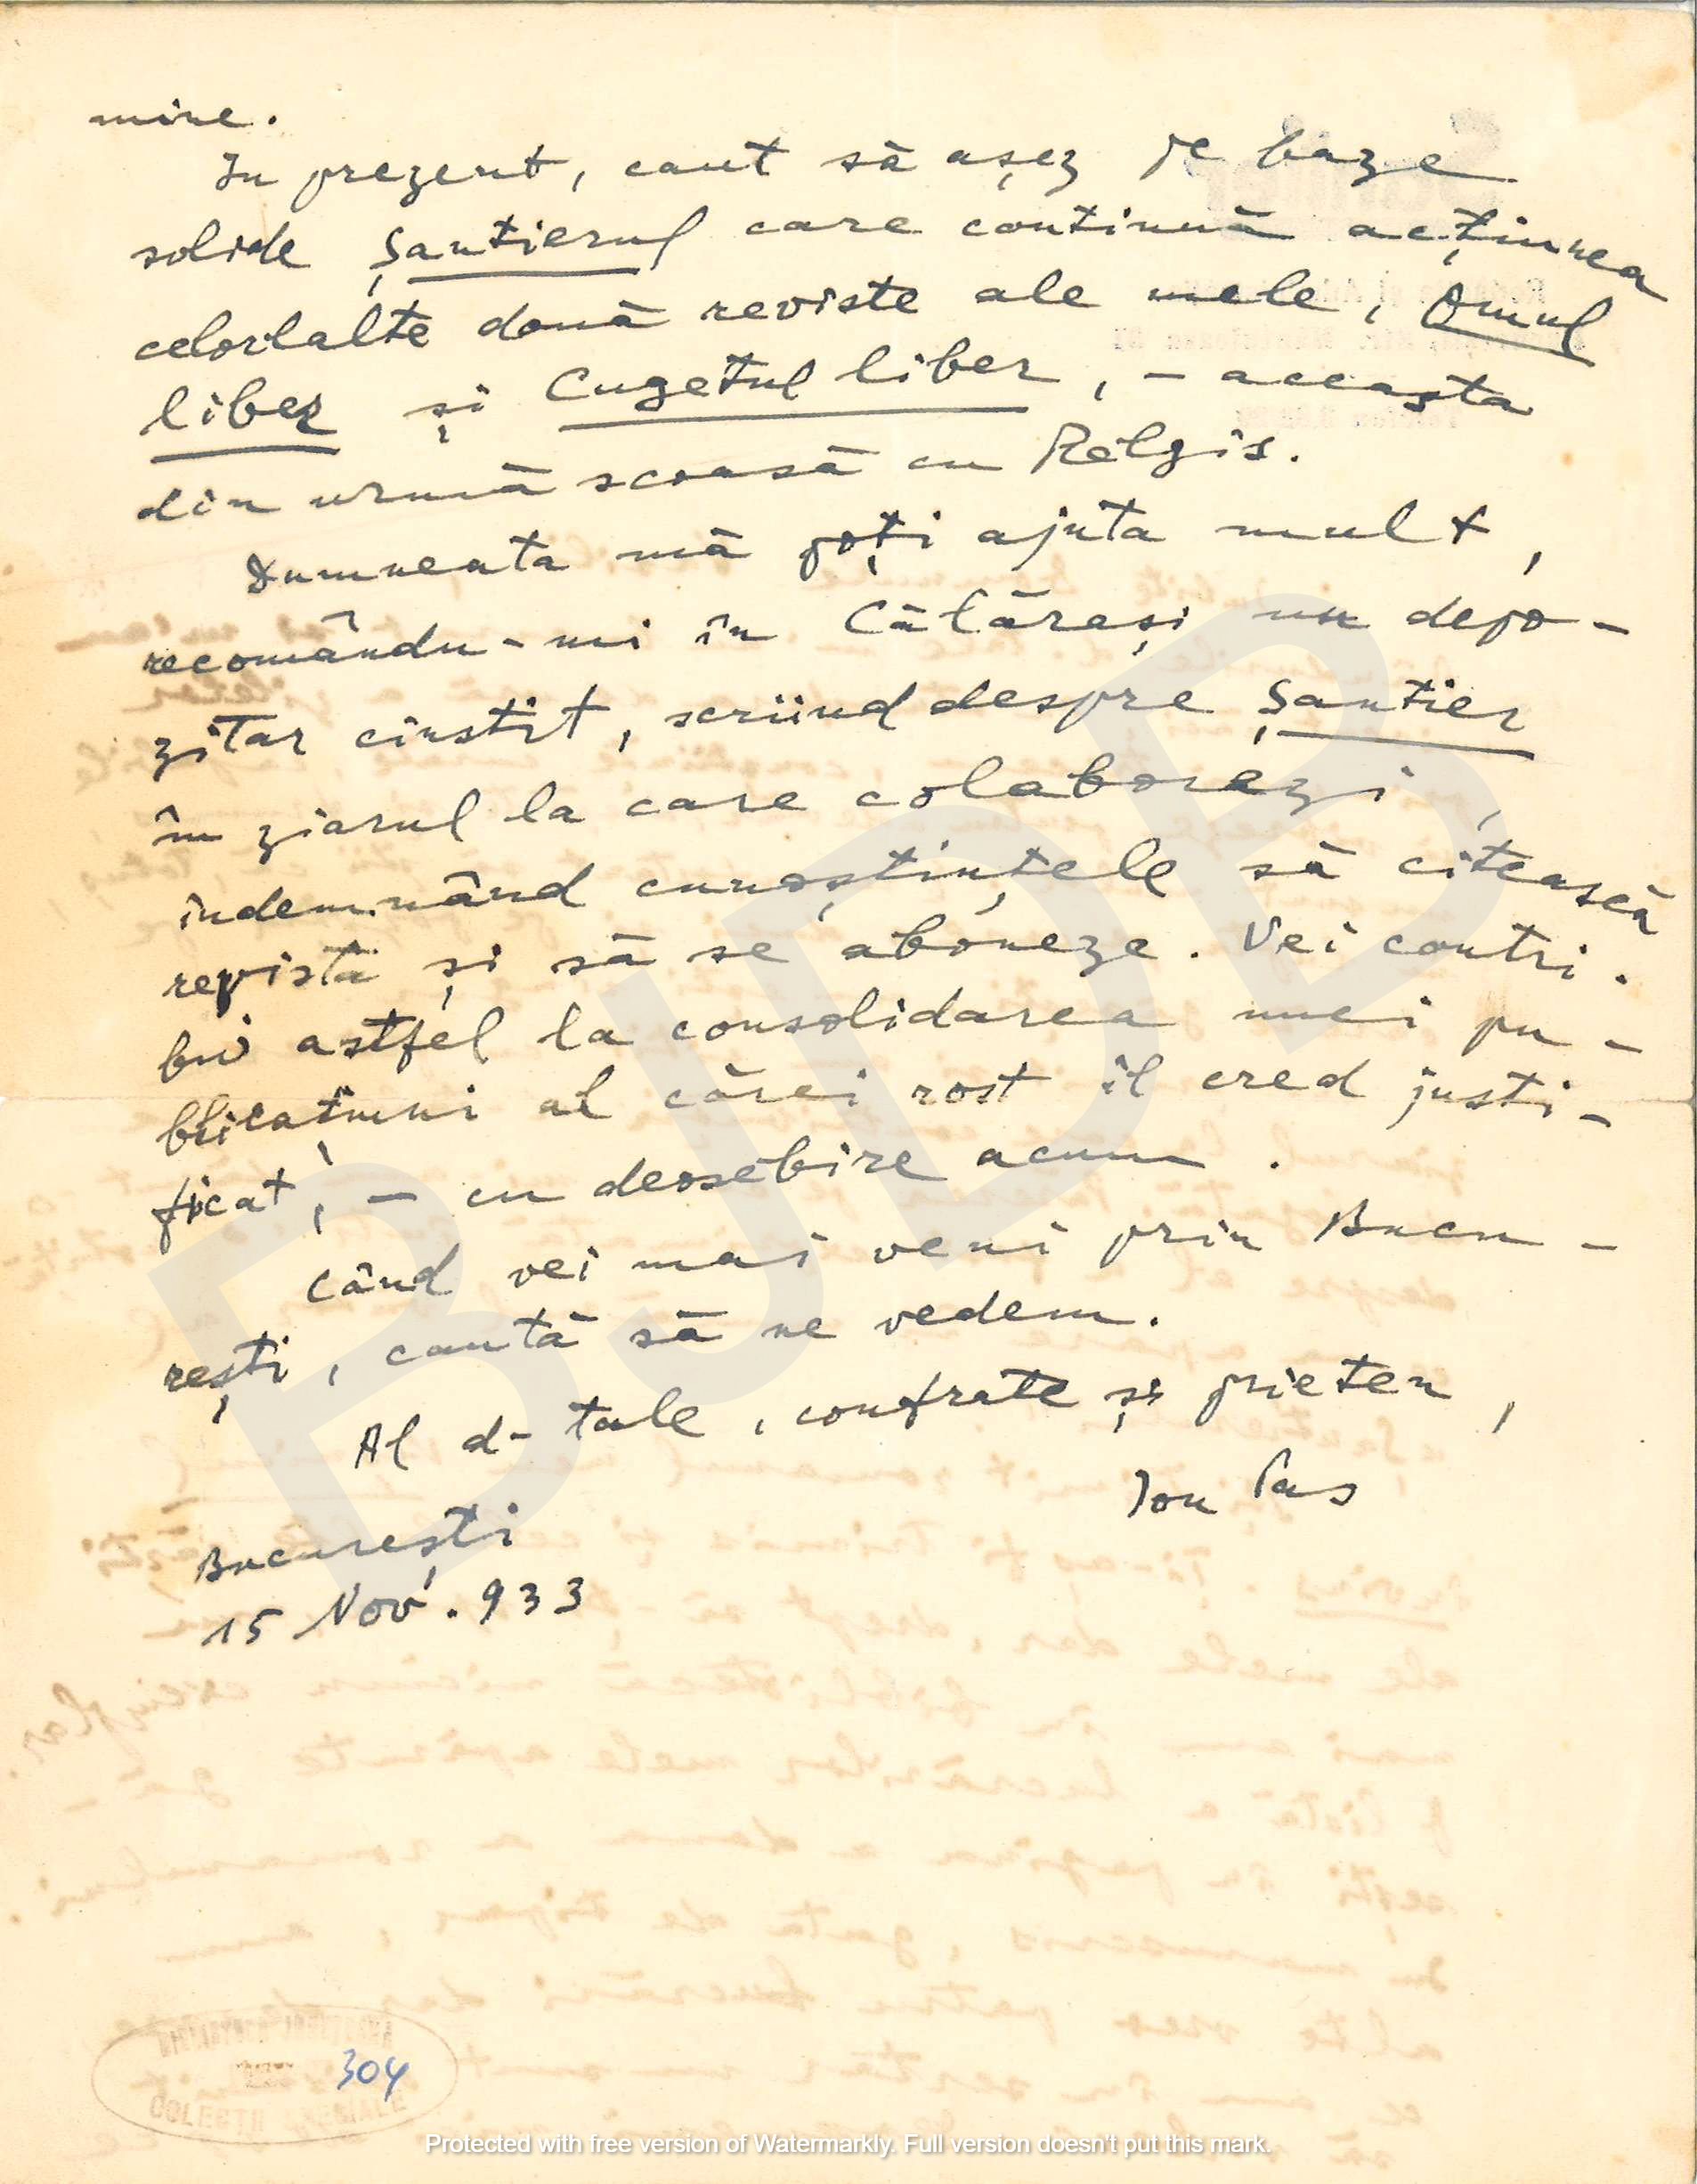 mine.
In prezent, caut să așez pe baze
solide Șantierul care continuă acțiunea
celorlalte două reviste ale mele, Omul
liber și Cugetul liber, – aceasta
din urmă scoasă cu Relgis.
Dumneata mă poți ajuta mult,
recomându-mi în Călărași un depo-
zitar cinstit, scriind despre Șantier
în ziarul la care colaborezi,
îndemnând cunoștințele să citească
revista și să se aboneze. Vei contri-
bui astfel la consolidarea unei pu-
blicațiuni al cărei rost îl cred justi-
ficat, – cu deosebire acum.
Când vei mai veni prin Bucu-
rești, caută să ne vedem.
Al d-tale, confrate și prieten,
Ion Pas
București
15 Nov. 933
304
COLECȚII SPECIALE
BJDB
Protected with free version of Watermarkly. Full version doesn't put this mark.